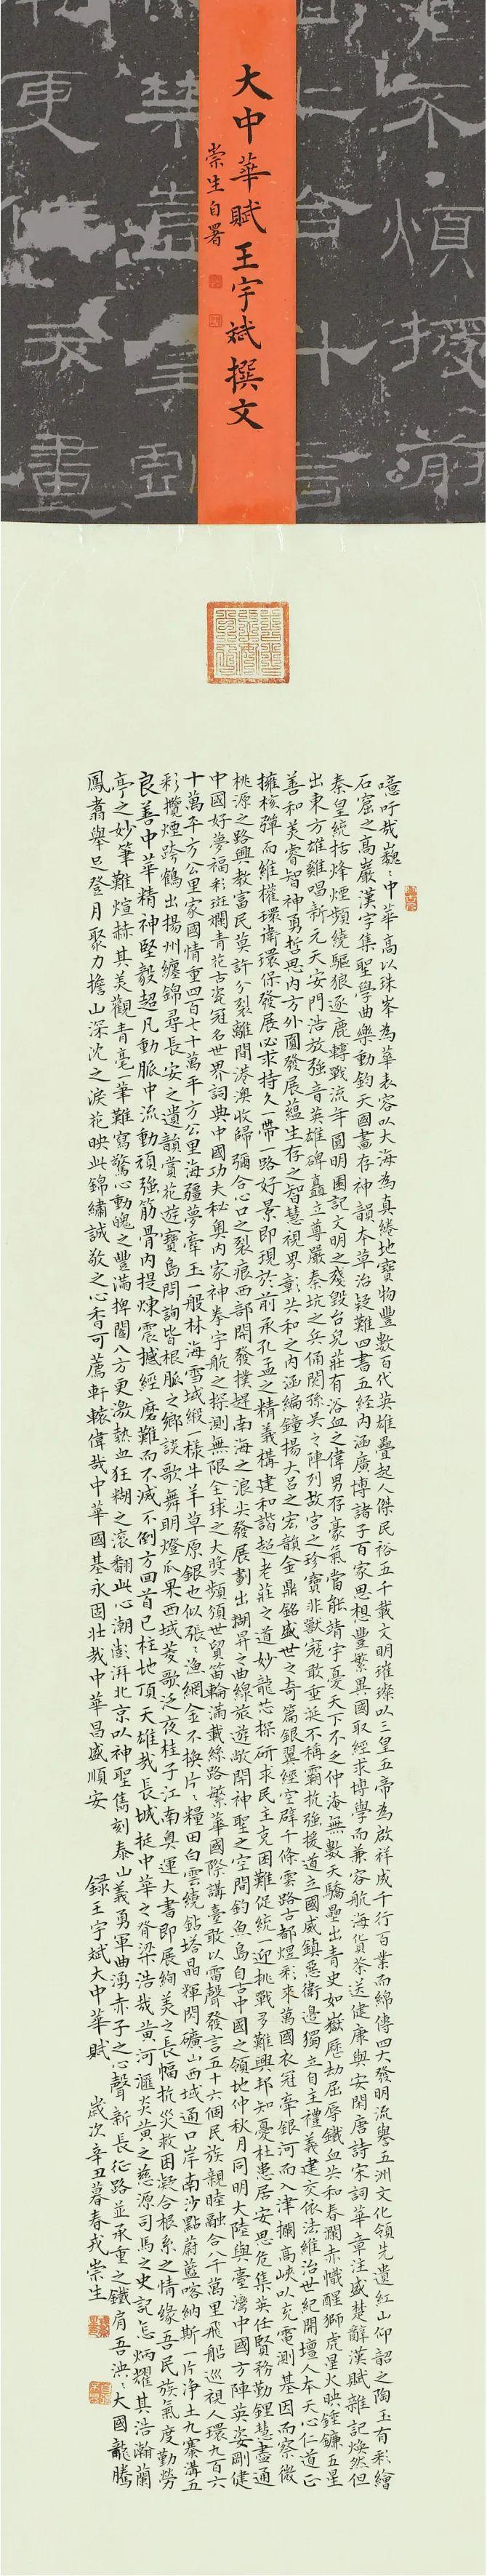 大中華賦王宇斌撰文
崇生自署
噫吁哉巍巍中華高以珠峯為華表容以大海為真綣地寶物豐數百代英雄疊起人傑民裕五千載文明璀璨以三皇五帝為啟祥成千行百業而綿傳四大發明流譽五洲文化領先遺紅山仰韶之陶玉有彩繪
石窟之高巖漢字集聖學曲樂動鈞天國畫存神韻本草治疑難四書五經內涵廣博諸子百家思想豐繁異國取經求博學而兼容航海貨茶送健康與安閑唐詩宋詞華章注盛楚辭漢賦雜記煥然但
秦皇統括烽煙頻繞驅狼逐鹿轉戰流年圓明園記文明之殘毀台兒莊有浴血之偉男存豪氣當能靖宇憂天下不乏仲淹無數天驕壘出青史如嶽歷劫屈辱鐵血共和春瀾赤幟醒獅虎星火映錘鐮五星
出東方雄雞唱新元天安門浩放強音英雄碑矗立尊嚴秦坑之兵俑閱孫吳之陣列故宮之珍寶非獸冠敢垂涎不稱霸抗強援道立國威鎮惡衛邊獨立自主禮義建交依法維治世紀開壇人本天心仁道正
善和美睿智神勇哲思內方外圓發展蘊生存之智慧視界彰共和之內涵編鐘揚大呂之宏韻金鼎銘盛世之奇篇銀翼經空辟千條雲路古都煜彩來萬國衣冠牽銀河而入津攔高峽以充電測基因而察微
擁核彈而維權環衛環保發展必求持久一帶一路好景即現於前承孔孟之精義構建和諧超老莊之道妙龍芯探研求民主克困難促統一迎挑戰多難興邦知憂杜患居安思危集英任賢務勤鋰慧盡通
桃源之路興教富民莫許分裂離間港澳收歸彌合心口之裂痕西部開發撲趕南海之浪尖發展劃出翱昇之曲線旅遊敞開神聖之空間釣魚島自古中國之領地仲秋月同明大陸與臺灣中國方陣英姿剛健
中國好夢福彩斑斕青花古瓷冠名世界詞典中國功夫秘奧內家神拳宇航之探測無限全球之大獎頻頒世貿笛輪滿載絲路繁華國際講臺敢以雷聲發言五十六個民族親睦融合八千萬里飛船巡視人環九百六
十萬平方公里家國情重四百七十萬平方公里海疆夢牽玉一般林海雪域緞一樣牛羊草原銀也似張張漁網金不換片片糧田白雲繞鉆塔晶輝閃礦山西域通口岸南沙點蔚藍喀納斯一片淨土九寨溝五
彩攬煙跨鶴出揚州纏錦尋長安之遺韻賞花遊寶島問詢皆根脈之鄉談歌舞明燈瓜果西域菱歌泛夜桂子江南奧運大書即展絢美之長幅抗災救困凝合根系之情緣吾民族氣度勤勞
良善中華精神堅毅超凡動脈中流動頑強筋骨內提煉震撼經磨難而不滅不倒方回首已柱地頂天雄哉長城挺中華之脊梁浩哉黃河滙炎黃之慈源司馬之史記怎炳耀其浩瀚蘭
亭之妙筆難煊赫其美觀青毫一筆難寫驚心動魄之豐滿捭闔八方更激熱血狂糊之滾翻此心潮澎湃北京以神聖雋刻泰山義勇軍曲湧赤子之心聲新長征路並承重之鐵肩吾洪洪大國龍騰
鳳翥舉足登月聚力擔山深沈之淚花映此錦繡誠敬之心香可薦軒轅偉哉中華國基永固壯哉中華昌盛順安
錄王宇斌大中華賦
歲次辛丑暮春戎崇生